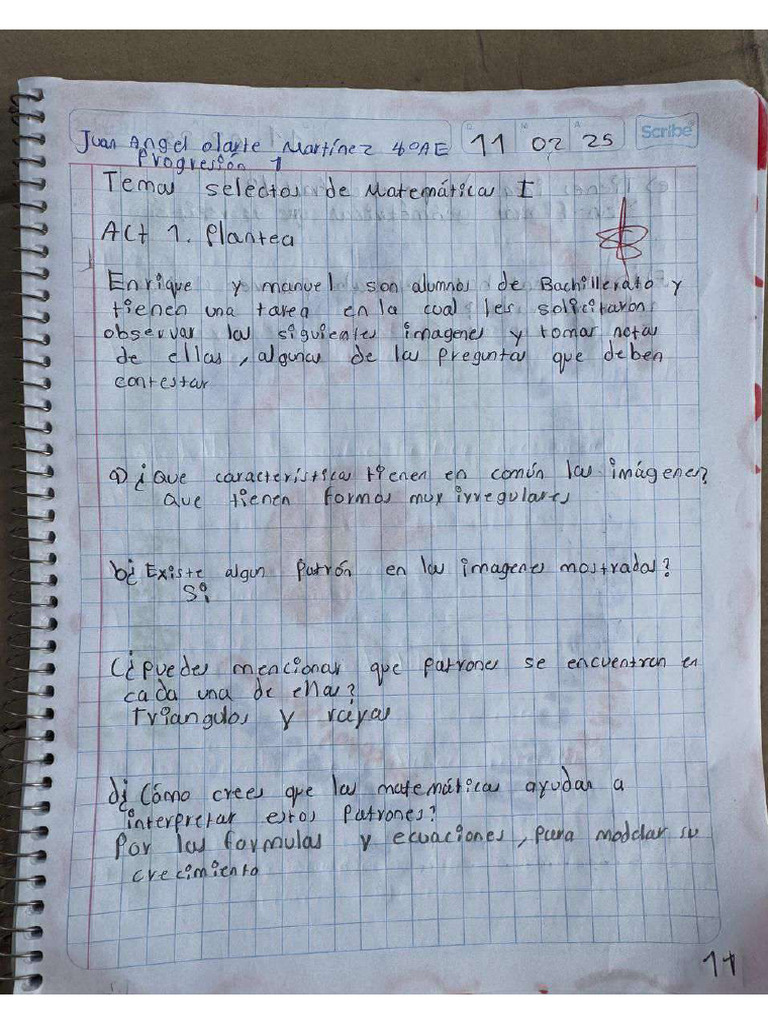 Juan Angel olarte Martínez 4°AE
11 02 25
Scribe
Progresión 1
Temas selectos de Matemática I
Act 1. Plantea
Enrique y manuel son alumnos de Bachillerato y
tienen una tarea en la cual les solicitaron
observar las siguientes imagenes y tomar notas
de ellas, algunas de las preguntas que deben
contestar
a) ¿Que característica tienen en común las imágenes?
que tienen formas muy irregulares
b¿ Existe algun Patrón en las imagenes mostradas?
Si
c¿ puedes mencionar que patrones se encuentran en
cada una de ellas?
Triangulos y rayas
d¿ Cómo crees que las matemática ayudar a
interpretar estos Patrones?
Por las formulas y ecuaciones, para modelar su
crecimiento